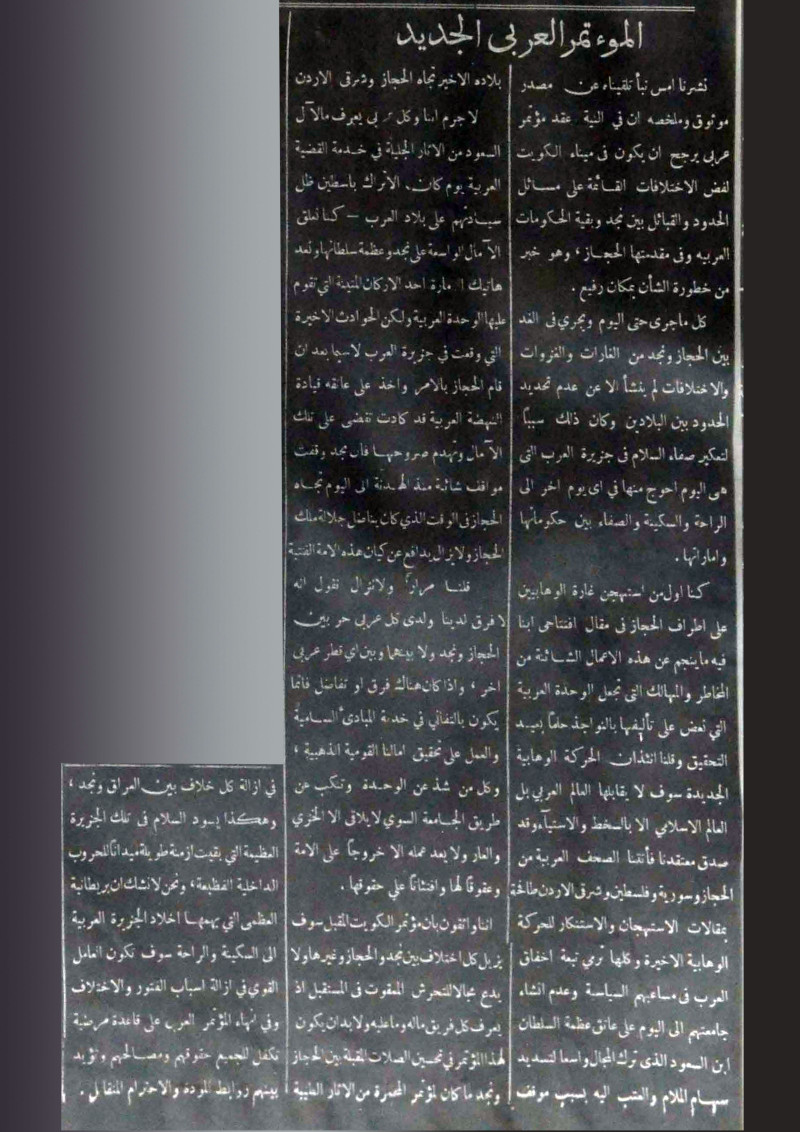 الموءتمر العربي الجديد
نشرنا امس نبأ تلقيناه عن مصدر
موثوق وملخصه ان في النية عقد مؤتمر
عربي يرجح ان يكون في ميناء الكويت
لفض الاختلافات القائمة على مسائل
الحدود والقبائل بين نجد وبقية الحكومات
العربيه وفي مقدمتها الحجاز ، وهو خبر
من خطورة الشأن بمكان رفيع .
كل ماجرى حتى اليوم ويجري في الغد
بين الحجاز ونجد من الغارات والغزوات
والاختلافات لم ينشأ الا عن عدم تحديد
الحدود بين البلادين وكان ذلك سبباً
لتعكير صفاء السلام في جزيرة العرب التي
هي اليوم احوج منها في اي يوم اخر الى
الراحة والسكينة والصفاء بين حكوماتها
واماراتها .
كنا اول من استهجن غارة الوهابيين
على اطراف الحجاز في مقال افتتاحي ابنا
فيه ماينجم عن هذه الاعمال الشائنة من
المخاطر والمهالك التي تجعل الوحدة العربية
التي نعض على تأليفها بالنواجذ حلماً بعيد
التحقيق وقلنا انئذان الحركة الوهابية
الجديدة سوف لا يقابلها العالم العربي بل
العالم الاسلامي الا بالسخط والاستياء وقد
صدق معتقدنا فأتتنا الصحف العربية من
الحجاز وسورية وفلسطين وشرقي الاردن طافحة
بمقالات الاستهجان والاستنكار للحركة
الوهابية الاخيرة وكلها ترمي تبعة اخفاق
العرب في مساعيهم السياسة وعدم انشاء
جامعتهم الى اليوم على عاتق عظمة السلطان
ابن السعود الذي ترك المجال واسعا لتسديد
سهام الملام والعتب اليه بسبب موقف
بلاده الاخير تجاه الحجاز وشرقي الاردن
لاجرم اننا وكل عربي يعرف مالآل
السعود من الاثار الجليلة في خدمة القضية
العربية يوم كان الاتراك باسطين ظل
سيادتهم على بلاد العرب – كنا نعلق
الآمال الواسعة على نجد وعظمة سلطانها ونعد
هاتيك الامارة احد الاركان المتينة التي تقوم
عليها الوحدة العربية ولكن الحوادث الاخيرة
التي وقعت في جزيرة العرب لاسيما بعد ان
قام الحجاز بالامر واخذ على عاتقه قيادة
النهضة العربية قد كادت تقضي على تلك
الآمال وتهدم صروحها فأن نجد وقفت
مواقف شائنة منذ الهدنة الى اليوم تجاه
الحجاز في الوقت الذي كان يناضل جلالة ملك
الحجاز ولا يزال يدافع عن كيان هذه الامة الفتية
قلنا مراراً ولانزال نقول انه
لا فرق لدينا ولدى كل عربي حر بين
الحجاز ونجد ولا بينهما وبين اي قطر عربي
اخر ، واذا كان هناك فرق او تفاضل فانما
يكون بالتفاني في خدمة المبادئ السامية
والعمل على تحقيق امالنا القومية الذهبية ،
وكل من شذ عن الوحدة وتنكب عن
طريق الجامعة السوي لايلاقي الا الخزي
والعار ولا يعد عمله الا خروجاً على الامة
وعقوقا لها وافتئاتا على حقوقها .
اننا واثقون بان مؤتمر الكويت المقبل سوف
يزيل كل اختلاف بين نجد والحجاز وغيرها ولا
يدع مجالا للتحرش الممقوت في المستقبل اذ
يعرف كل فريق ماله وماعليه ولابد ان يكون
لهذا المؤتمر في تحسين الصلات المقبلة بين الحجاز
ونجد ما كان لمؤتمر المحمرة من الاثار الطيبة
في ازالة كل خلاف بين العراق ونجد ،
وهكذا يسود السلام في تلك الجزيرة
العظيمة التي بقيت ازمنة طويلة ميداناً للحروب
الداخلية الفظيعة ، ونحن لانشك ان بريطانية
العظمى التي يهمها اخلاد الجزيرة العربية
الى السكينة والراحة سوف تكون العامل
القوي في ازالة اسباب الفتور والاختلاف
وفي انهاء المؤتمر العربي على قاعدة مرضية
تكفل للجميع حقوقهم ومصالحهم وتؤيد
بينهم روابط المودة والاحترام المتقابل .